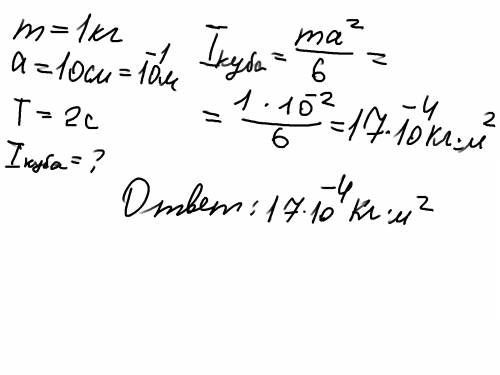 m = 1кг
a = 10см = 10⁻¹м
T = 2с
Iкуба = ?
Iкуба = ma²/6 =
= 1 · 10⁻²/6 = 17·10⁻⁴кг·м²
Ответ: 17·10⁻⁴кг·м²